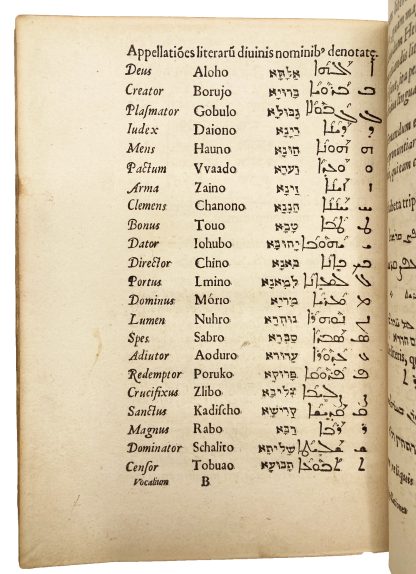 Appellatiões literarũ diuinis nominibꝰ denotatę.
Deus Aloho אלהא ܐܠܗܐ ܐ
Creator Borujo ברויא ܒܪܘܝܐ ܒ
Plasmator Gobulo גבולא ܓܒܘܠܐ ܓ
Iudex Daiono דינא ܕܝܢܐ ܕ
Mens Hauno הונא ܗܘܢܐ ܗ
Pactum Vvaado ועדא ܘܥܕܐ ܘ
Arma Zaino זינא ܙܝܢܐ ܙ
Clemens Chanono חננא ܚܢܢܐ ܚ
Bonus Touo טבא ܛܒܐ ܛ
Dator Iohubo יהובא ܝܗܘܒܐ ܝ
Director Chino כאנא ܟܐܢܐ ܟ
Portus Lmino למאנא ܠܡܐܢܐ ܠ
Dominus Mório מריא ܡܪܝܐ ܡ
Lumen Nuhro נוהרא ܢܘܗܪܐ ܢ
Spes Sabro סברא ܣܒܪܐ ܣ
Adiutor Aoduro עדורא ܥܕܘܪܐ ܥ
Redemptor Poruko פרוקא ܦܪܘܩܐ ܦ
Crucifixus Zlibo צליבא ܨܠܝܒܐ ܨ
Sanctus Kadischo קדישא ܩܕܝܫܐ ܩ
Magnus Rabo רבא ܪܒܐ ܪ
Dominator Schalito שליטא ܫܠܝܛܐ ܫ
Censor Tobuao תבועא ܬܒܘܥܐ ܬ
Vocalium B